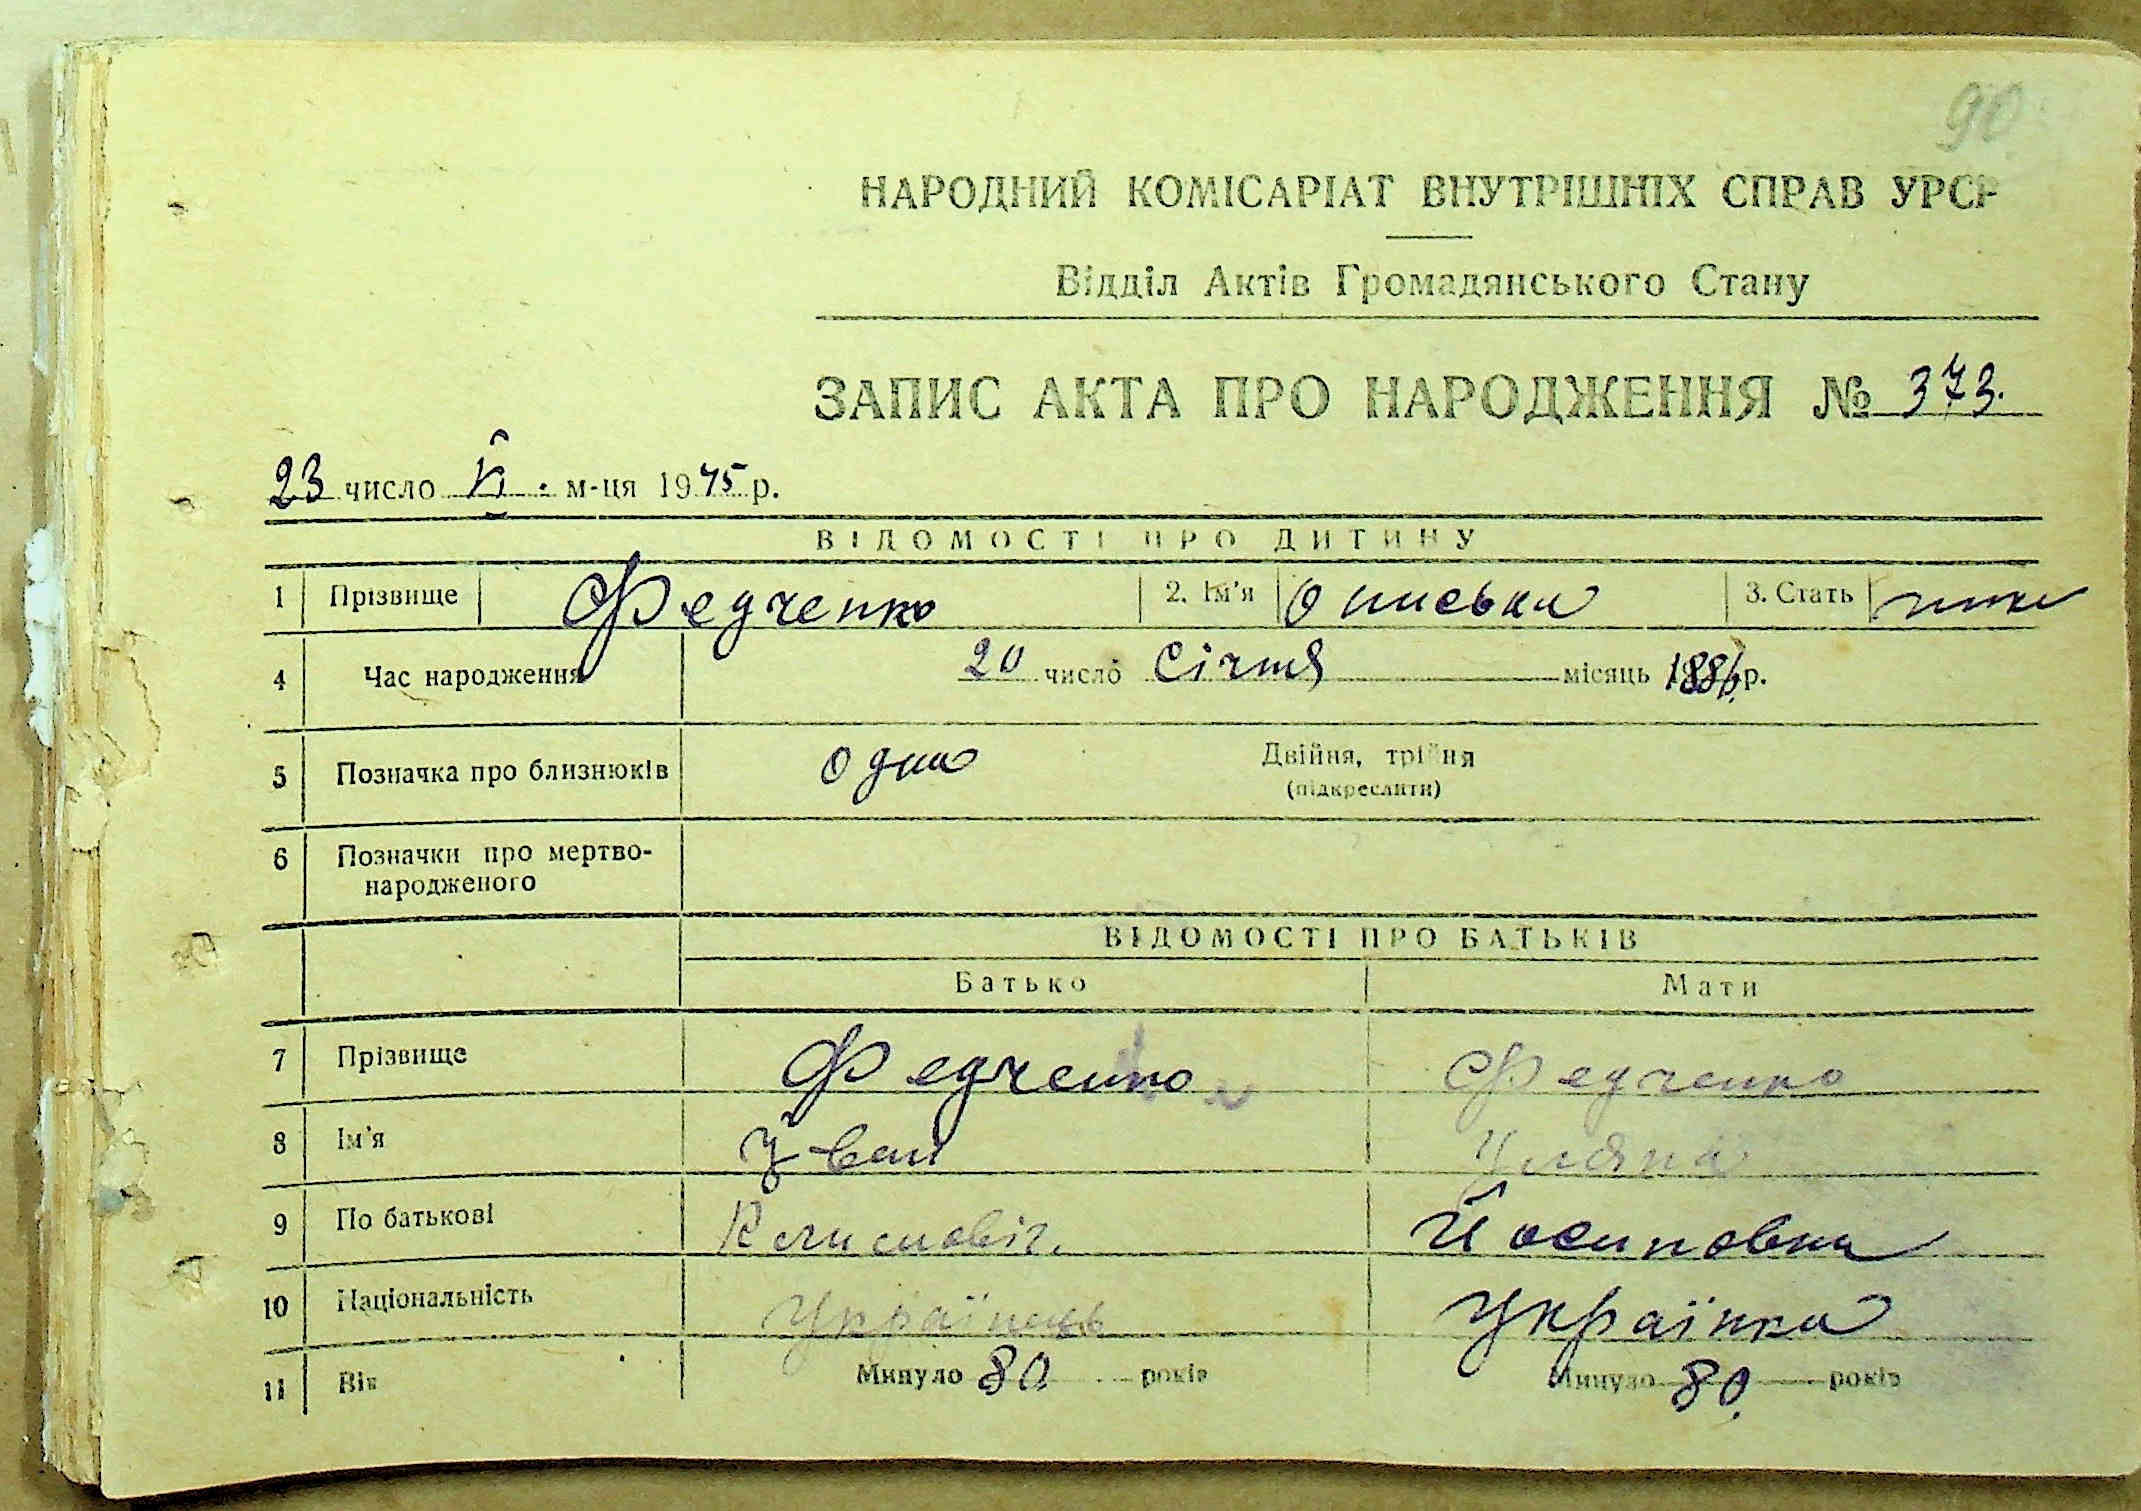 90
НАРОДНИЙ КОМІСАРІАТ ВНУТРІШНІХ СПРАВ УРСР
Відділ Актів Громадянського Стану
ЗАПИС АКТА ПРО НАРОДЖЕННЯ № 373.
23 число VI м-ця 1945 р.
ВІДОМОСТІ ПРО ДИТИНУ
1 Прізвище Федченко 2. Ім'я Ониська 3. Стать
4 Час народження 20 число Січня місяць 1886 р.
5 Позначка про близнюків одна Двійня, трійня
(підкреслити)
6 Позначки про мертво-
народженого
ВІДОМОСТІ ПРО БАТЬКІВ
Батько Мати
7 Прізвище Федченко Федченко
8 Ім'я Іван Уляна
9 По батькові Йосиповна
10 Національність Українець Українка
11 Вік Минуло 80 років Минуло 80. років